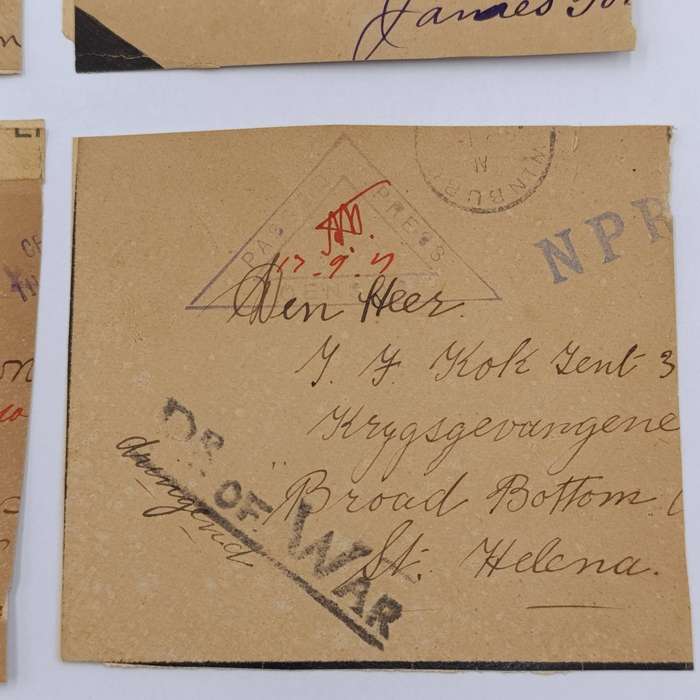 James
PASSED PRESS
CENSOR
WINBURG
NPR
17.9.01
Den Heer.
J. F. Kok Tent 3
Krygsgevangene
Broad Bottom.
St. Helena.
dringend
OF WAR